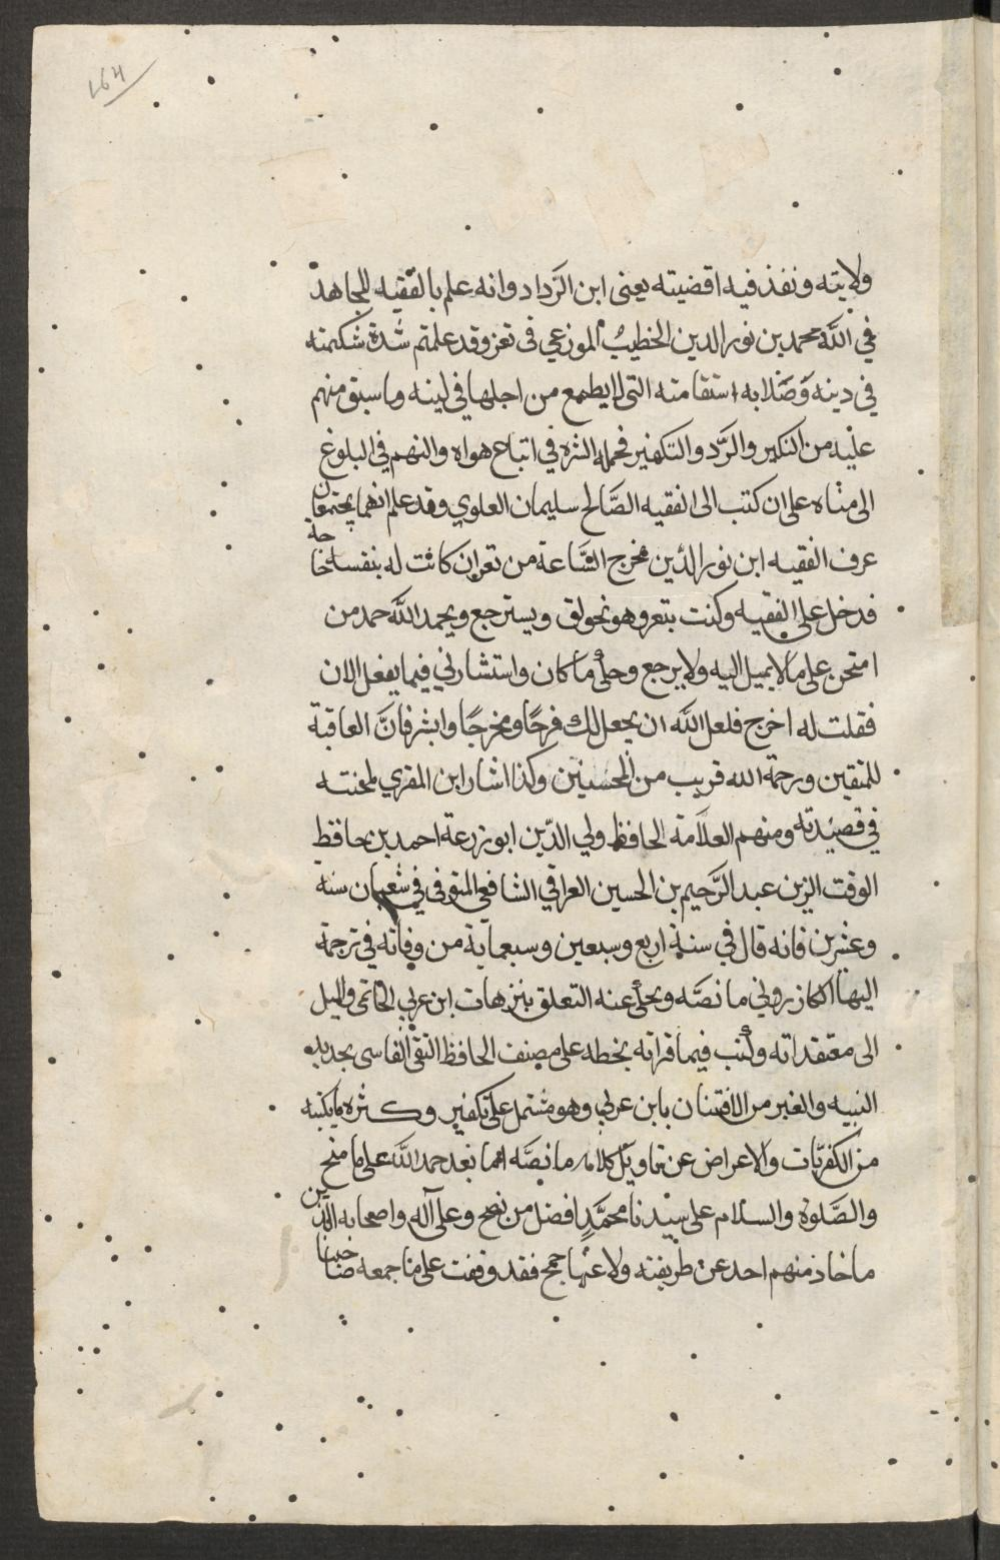 164
ولايته ونفذ فيه اقضيته يعني ابن الرَّداد وانه علم بالفقيه المجاهد
في الله محمد بن نور الدين الخطيب الموزعي في تعز وقد علمتم شدة شكيمته
في دينه وَصَلابه استقامته التي لا يطمع من اجلها في لينه وما سبق منهم
عليه من النكير والرَّد والتكفير فحمله الشره في اتباع هواه والنهم في البلوغ
الى مناه على ان كتب الى الفقيه الصَّالح سليمان العلوي وقد علم انهما يجتمعان
عرف الفقيه ابن نور الدين مخرج السَّاعة من تعز ان كانت له بنفسه حاجة
فدخل على الفقيه وكنت بتعز وهو يحولق ويسترجع ويحمد الله حمد من
امتحن على ما لا يميل اليه ولا يرجع وحكى ما كان واستشارني فيما يفعل الان
فقلت له اخرج فلعل الله ان يجعل لك فرجًا ومخرجًا وابشر فانَّ العاقبة
للمتقين ورحمة الله قريب من المحسنين وكذا اشار ابن المقري لمحنته
في قصيدته ومنهم العلاَّمة الحافظ ولي الدّين ابو زرعة احمد بن حافظ
الوقت الزين عبد الرَّحيم بن الحسين العراقي الشافعي المتوفى في شعبان سنة
وعشرين فانه قال في سنة اربع وسبعين وسبعماية من وفاته في ترجمة
البهاا الكازروني ما نصَّه ويحكى عنه التعلق بتزهات ابن عربي الحاتمي والميل
الى معتقداته وكتب فيما قراته بخطه على مصنف الحافظ التقي الفاسي بحديه
النبيه والغبي من الافتتان بابن عربي وهو مشتمل على تكفير وكثره ما يكتبه
من الكفريَّات والاعراض عن تاويل كلامه ما نصَّه اما بعد حمد الله على ما منح
والصَّلوة والسلام على سيدنا محمَّدٍ افضل من نصح وعلى آله واصحابه الذين
ما حاد منهم احد عن طريقته ولا عنها جمح فقد وقفت على ما جمعه صاحبنا